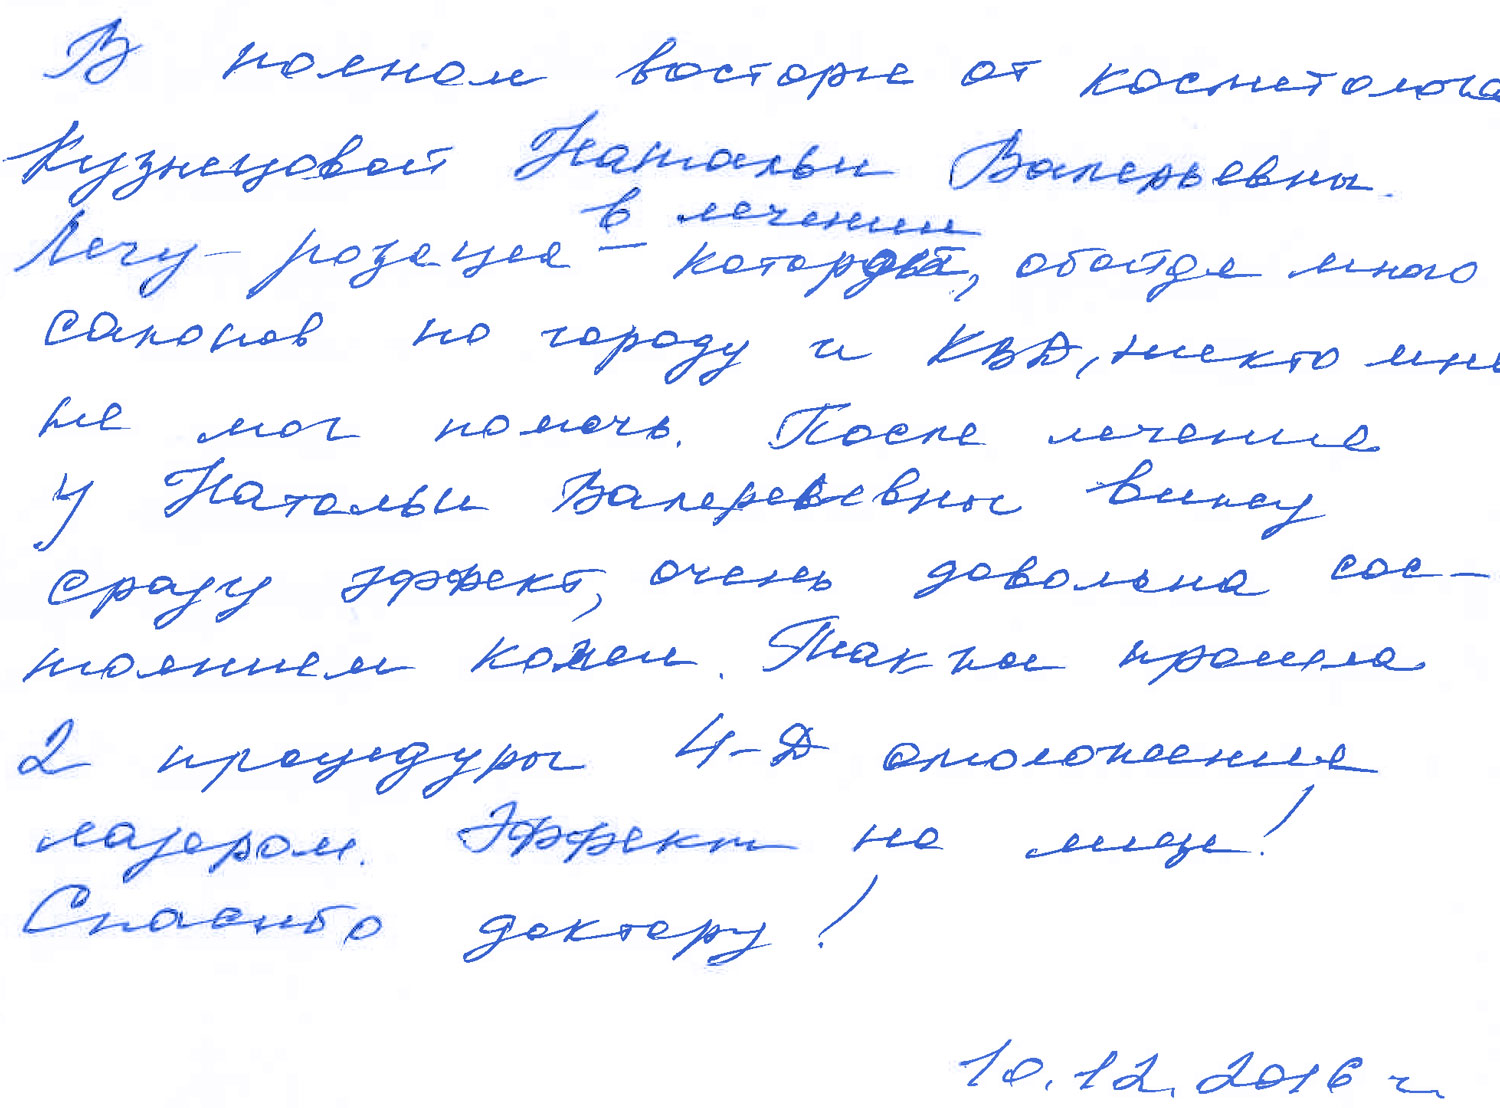 В полном восторге от косметолога
Кузнецовой Натальи Валерьевны.
в лечении
Лечу - розацеа - которой, обойдя много
салонов по городу и КВД, никто мне
не мог помочь. После лечения
у Натальи Валерьевны вижу
сразу эффект, очень довольна сос-
тоянием кожи. Также прошла
2 процедуры 4-Д омоложения
лазером. Эффект на лице!
Спасибо доктору!
10.12.2016 г.